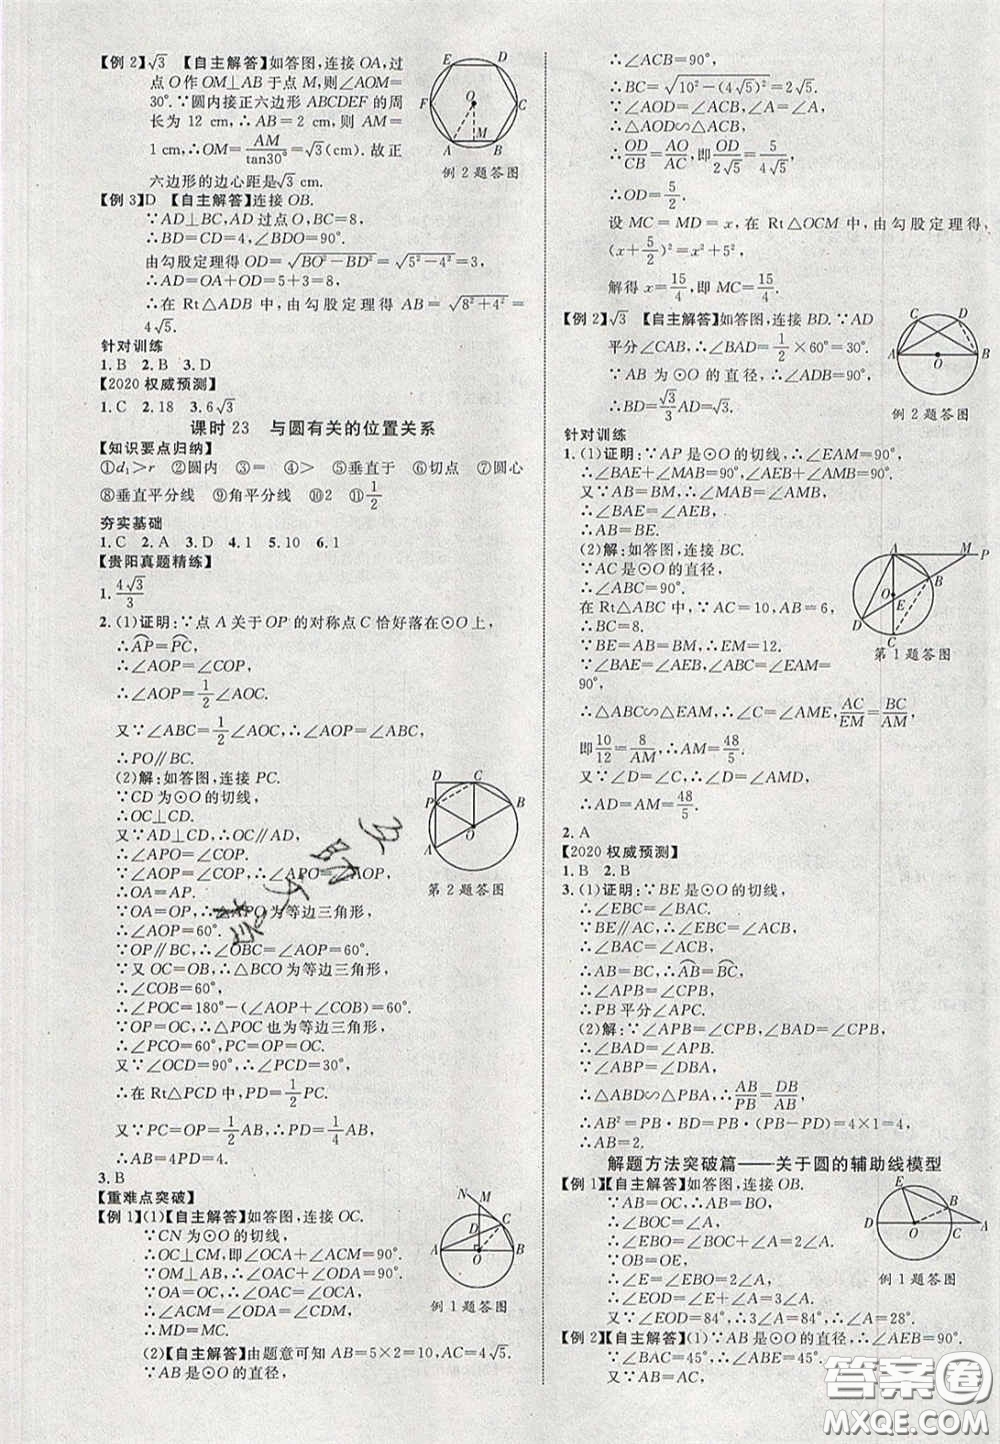 【例 2】√3 【自主解答】如答图，连接 OA，过
点 O 作 OM⊥AB 于点 M，则∠AOM=
30°.∵圆内接正六边形 ABCDEF 的周
长为 12 cm，则 AB=2 cm，则 AM=
1 cm，∴OM=AM/tan30°=√3(cm). 故正
六边形的边心距是√3 cm.
E D F O C A M B
例 2 题答图
【例 3】D 【自主解答】连接 OB.
∵AD⊥BC，AD 过点 O，BC=8，
∴BD=CD=4，∠BDO=90°.
由勾股定理得 OD=√(BO²-BD²)=√(5²-4²)=3.
∴AD=OA+OD=5+3=8.
∴在 Rt△ADB 中，由勾股定理得 AB=√(8²+4²)=
4√5.
针对训练
1.B 2.B 3.D
【2020 权威预测】
1.C 2.18 3.6√3
课时 23 与圆有关的位置关系
【知识要点归纳】
①d₁>r ②圆内 ③= ④= ⑤垂直于 ⑥切点 ⑦圆心
⑧垂直平分线 ⑨角平分线 ⑩2 ⑪1/2
夯实基础
1.C 2.A 3.D 4.1 5.10 6.1
【贵阳真题精练】
1. 4√3/3
2.(1)证明：∵点 A 关于 OP 的对称点 C 恰好落在⊙O 上，
∴⌒AP=⌒PC，
∴∠AOP=∠COP，
∴∠AOP=1/2∠AOC.
又∵∠ABC=1/2∠AOC，∴∠AOP=∠ABC，
∴PO∥BC.
(2)解：如答图，连接 PC.
∵CD 为⊙O 的切线，
∴OC⊥CD.
又∵AD⊥CD，∴OC∥AD，
∴∠APO=∠COP.
∵∠AOP=∠COP，∴∠APO=∠AOP，
∴OA=AP.
∵OA=OP，∴△APO 为等边三角形，
∴∠AOP=60°.
∵OP∥BC，∴∠OBC=∠AOP=60°.
又∵OC=OB，∴△BCO 为等边三角形，
∴∠COB=60°，
∴∠POC=180°-(∠AOP+∠COB)=60°.
∵OP=OC，∴△POC 也为等边三角形，
∴∠PCO=60°，PC=OP=OC.
又∵∠OCD=90°，∴∠PCD=30°.
∴在 Rt△PCD 中，PD=1/2PC.
又∵PC=OP=1/2AB，∴PD=1/4AB，
∴AB=4PD=4.
D C P B O A
第 2 题答图
3.B
【重难点突破】
【例 1】(1)【自主解答】如答图，连接 OC.
∵CN 为⊙O 的切线，
∴OC⊥CM，即∠OCA+∠ACM=90°.
∵OM⊥AB，∴∠OAC+∠ODA=90°.
∵OA=OC，∴∠OAC=∠OCA，
∴∠ACM=∠ODA=∠CDM，
∴MD=MC.
N M C D A O B
例 1 题答图
(2)【自主解答】由题意可知 AB=5×2=10，AC=4√5.
∵AB 是⊙O 的直径，
∴∠ACB=90°，
∴BC=√(10²-(4√5)²)=2√5.
∵∠AOD=∠ACB，∠A=∠A，
∴△AOD∽△ACB，
∴OD/CB=AO/AC，即OD/2√5=5/4√5，
∴OD=5/2.
设 MC=MD=x，在 Rt△OCM 中，由勾股定理得，
(x+5/2)²=x²+5²，
解得 x=15/4，即 MC=15/4.
【例 2】√3 【自主解答】如答图，连接 BD.∵AD
平分∠CAB，∴∠BAD=1/2×60°=30°.
∵AB 为⊙O 的直径，∴∠ADB=90°，
∴BD=√3/3AD=√3.
C D A O B
例 2 题答图
针对训练
1.(1)证明：∵AP 是⊙O 的切线，∴∠EAM=90°，
∴∠BAE+∠MAB=90°，∠AEB+∠AMB=90°.
又∵AB=BM，∴∠MAB=∠AMB，
∴∠BAE=∠AEB，
∴AB=BE.
(2)解：如答图，连接 BC.
∵AC 是⊙O 的直径，
∴∠ABC=90°.
在 Rt△ABC 中，∵AC=10，AB=6，
∴BC=8.
∵BE=AB=BM，∴EM=12.
∵∠BAE=∠AEB，∠EAM=∠ABC=
90°，
∴△ABC∽△EAM，∴∠C=∠AME，AC/EM=BC/AM，
即10/12=8/AM，∴AM=48/5.
又∵∠D=∠C，∴∠D=∠AMD，
∴AD=AM=48/5.
A M P O B E D C
第 1 题答图
2.A
【2020 权威预测】
1.B 2.B
3.(1)证明：∵BE 是⊙O 的切线，
∴∠EBC=∠BAC.
∵BE∥AC，∴∠EBC=∠ACB，
∴∠BAC=∠ACB，
∴AB=BC，∴⌒AB=⌒BC，
∴PB 平分∠APC.
(2)解：∵∠APB=∠CPB，∠BAD=∠CPB，
∴∠BAD=∠APB.
又∵∠ABP=∠DBA，
∴△ABD∽△PBA，∴AB/PB=DB/AB，
∴AB²=PB·BD=PB·(PB-PD)=4×1=4，
∴AB=2.
解题方法突破篇——关于圆的辅助线模型
【例 1】【自主解答】如答图，连接 OB.
∵AB=OC，∴AB=BO，
∴∠BOC=∠A，
∴∠EBO=∠BOC+∠A=2∠A.
又∵OB=OE，
∴∠E=∠EBO=2∠A，
∴∠EOD=∠E+∠A=3∠A.
又∵∠EOD=84°，∴3∠A=84°，∴∠A=28°.
E B D O C A
例 1 题答图
【例 2】【自主解答】(1)∵AB 是⊙O 的直径，∴∠AEB=90°.
∵∠BAC=45°，∴∠ABE=45°.
又∵AB=AC，
答案圈
MXQE.COM